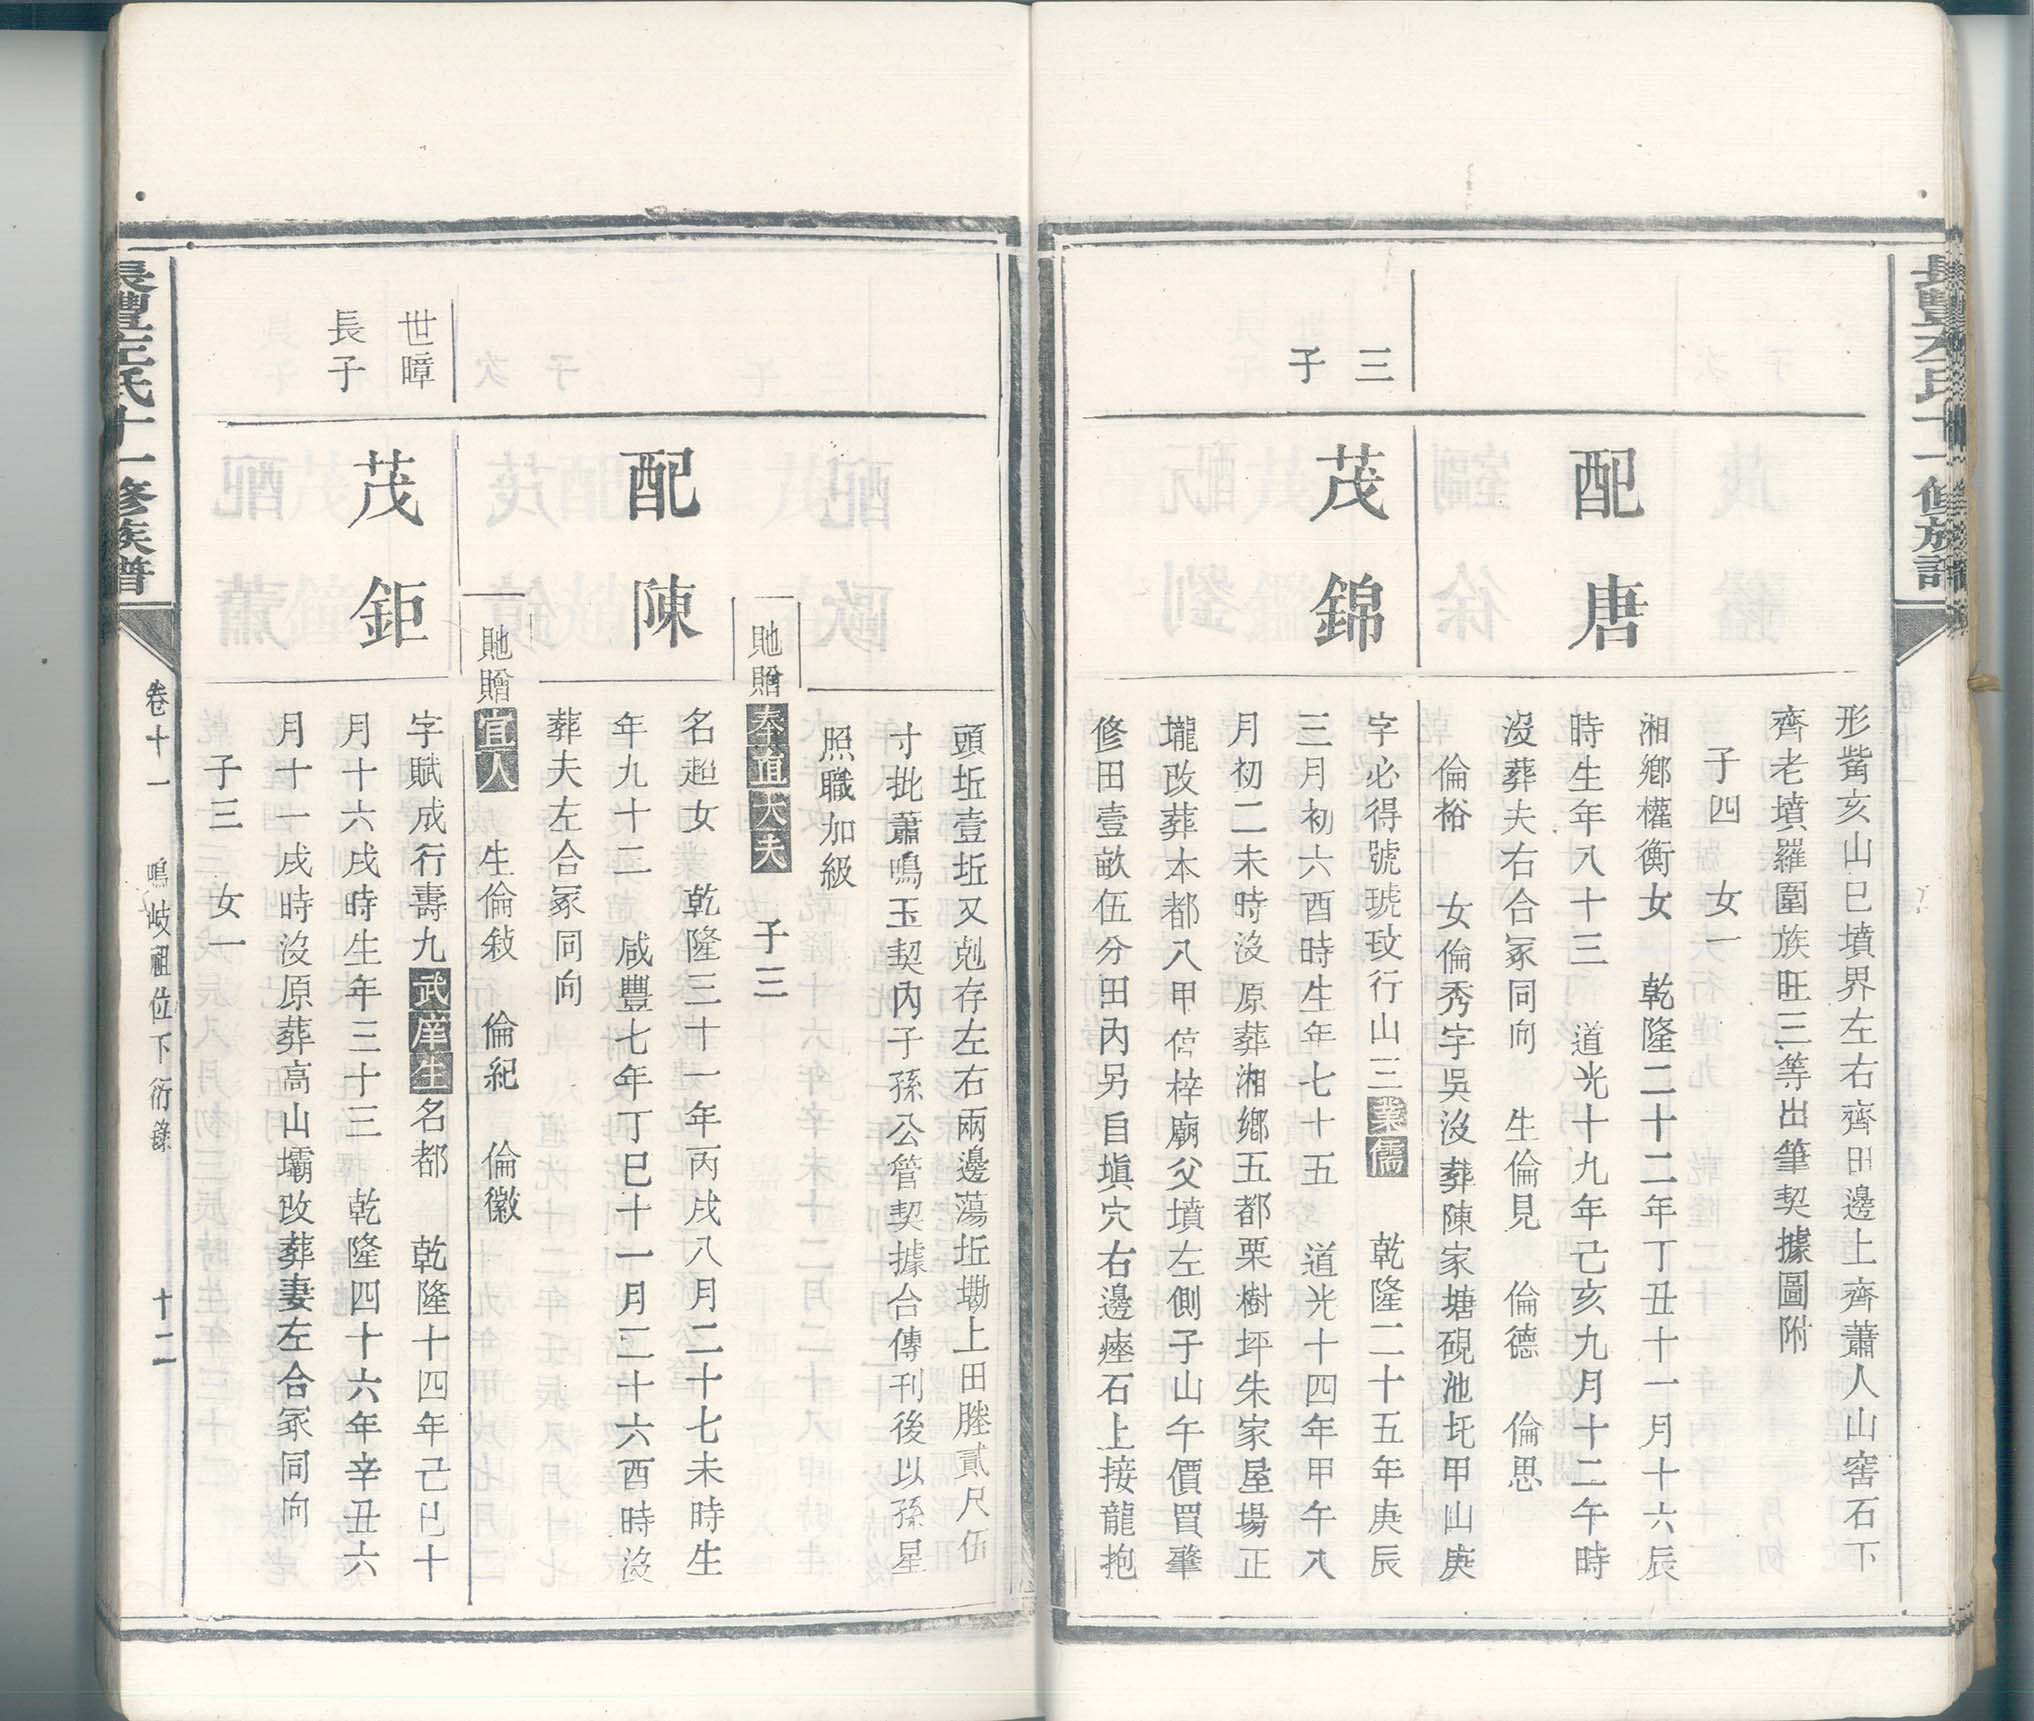 長豐左氏十一修族譜
形觜亥山巳墳界左右齊田邊上齊蕭人山窖石下
齊老墳羅圍族旺三等出筆契據圖附
子四　女一
配唐
湘鄉權衡女　乾隆二十二年丁丑十一月十六辰
時生年八十三　道光十九年己亥九月十二午時
沒葬夫右合冢同向　生倫見　倫德　倫思
倫裕　女倫秀字吳沒葬陳家塘硯池圫甲山庚
三
子
茂錦
字必得號琥玟行山三業儒　乾隆二十五年庚辰
三月初六酉時生年七十五　道光十四年甲午八
月初二未時沒原葬湘鄉五都栗樹坪朱家屋場正
壠改葬本都八甲信梓廟父墳左側子山午價買肇
修田壹畝伍分田內另自塡穴右邊瘞石上接龍抱
頭坵壹坵又剋存左右兩邊蕩坵墈上田塍貳尺伍
寸批蕭鳴玉契內子孫公管契據合傳刊後以孫星
照職加級
貤贈奉直大夫　子三
配陳
名超女　乾隆三十一年丙戌八月二十七未時生
年九十二　咸豐七年丁巳十一月二十六酉時沒
葬夫左合冢同向
貤贈宜人　生倫敍　倫紀　倫徽
世暲
長子
茂鉅
字賦成行壽九武庠生名都　乾隆十四年己巳十
月十六戌時生年三十三　乾隆四十六年辛丑六
月十一戌時沒原葬高山壩改葬妻左合冢同向
子三　女一
長豐左氏十一修族譜
卷十一　鳴岐祖位下衍錄　十二